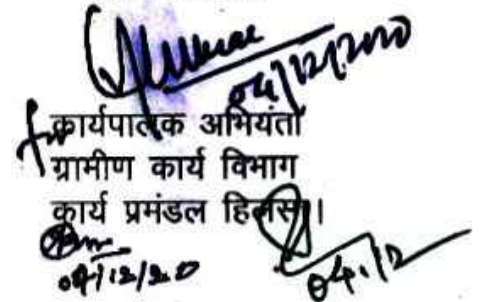 04/12/2020
for कार्यपालक अभियंता
ग्रामीण कार्य विभाग
कार्य प्रमंडल हिलसा।
04/12/20
04.12